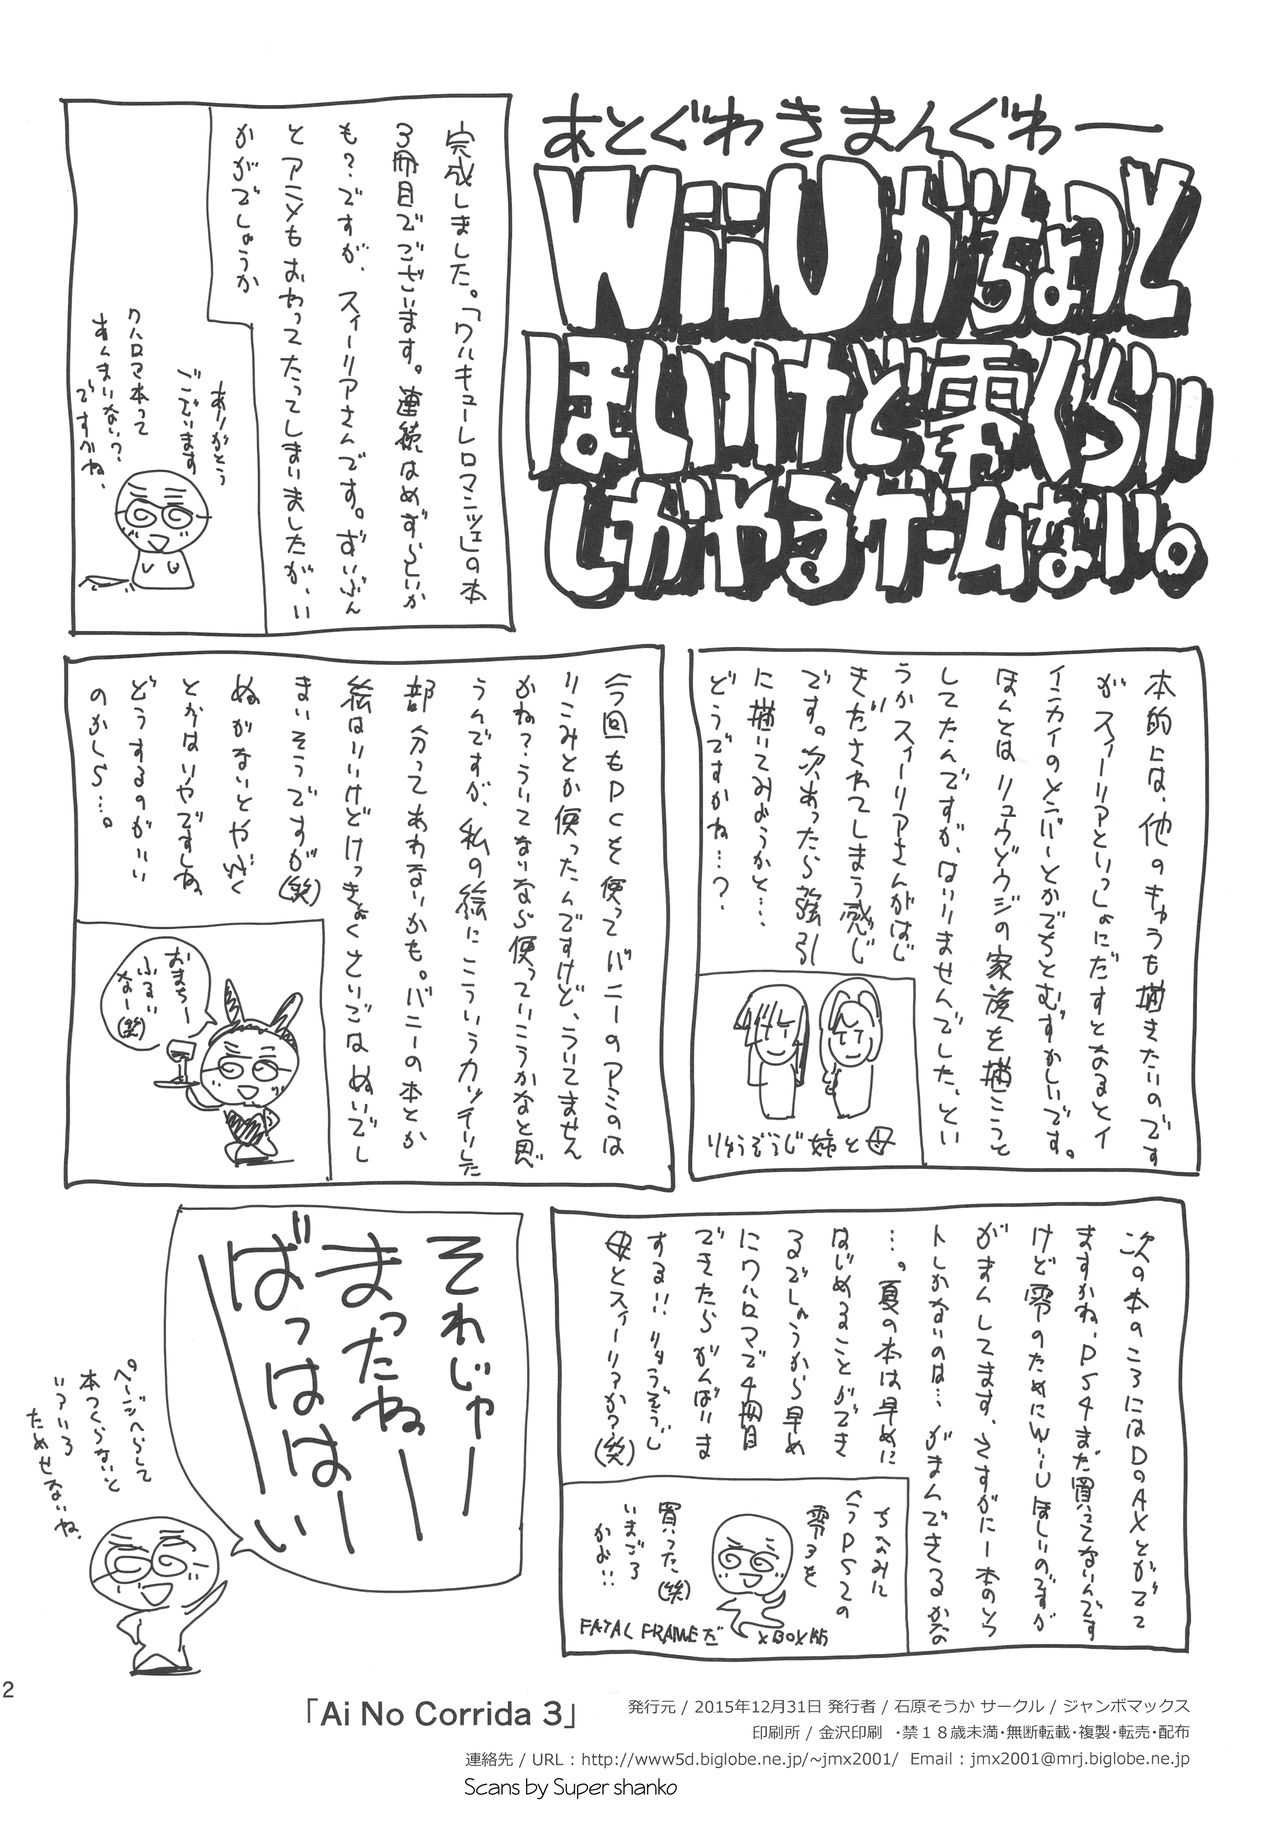 あとぐわきまんぐわー
WiiUがちょっと
ほしいけど零ぐらい
しかやるゲームない。
完成しました。「ワルキューレロマンツェ」の本
3冊目でございます。連続はめずらしいか
も?ですが、スィーリアさんです。ずいぶん
とアニメもおわってたってしまいましたが、い
かがでしょうか
ありがとう
ございます
ワルロマ本って
あんまいない?
ですかね、
本的には、他のきゃらも描きたいのです
がスィーリアといっしょにだすとなるとイ
インカイのメンバーとかでちとむずかしいです。
ほんとはリュウゾウジの家族を描こうと
してたんですが、はいりませんでした、とい
うかスィーリアさんがはじ
きだされてしまう感じ
です。次あったら強引
に描いてみようかと…、
どうですかね…?
りゅうぞうじ姉と母
今回もPCを使ってバニーのアミのは
りこみとか使ったんですけど、ういてません
かね?ういてないなら使っていこうかなと思
うんですが、私の絵にこういうカッチリした
部分ってあわないかも。バニーの本とか
絵はいいけどけっきょくさいごはぬいでし
まいそうですが(笑)
ぬがないとやぶく
とかはいやですしね
どうするのがいい
のかしら…。
おまちー
ふるい
なー(笑)
次の本のころにはDOAXとかでて
ますかね、PS4まだ買ってないんです
けど零のためにWiiUほしいのですが
がまんしてます、さすがに一本のソフ
トしかないのは…がまんできるかな
…。夏の本は早めに
はじめることができ
るでしょうから早め
にワルロマで4冊目
できたらがんばいま
する!!りゅうぞうじ
母とスィーリアか?(笑)
ちなみに
今PS2の
零3を
買った(笑)
いまごろ
かよ!!
FATAL FRAMEだ
XBOX版
それじゃー
まったねー
ばっはは―い
ページへらして
本つくらないと
いろいろ
ためせないね、
2
「Ai No Corrida 3」
発行元 / 2015年12月31日 発行者 / 石原そうか サークル / ジャンボマックス
印刷所 / 金沢印刷 ・禁18歳未満・無断転載・複製・転売・配布
連絡先 / URL : http://www5d.biglobe.ne.jp/~jmx2001/ Email : jmx2001@mrj.biglobe.ne.jp
Scans by Super shanko